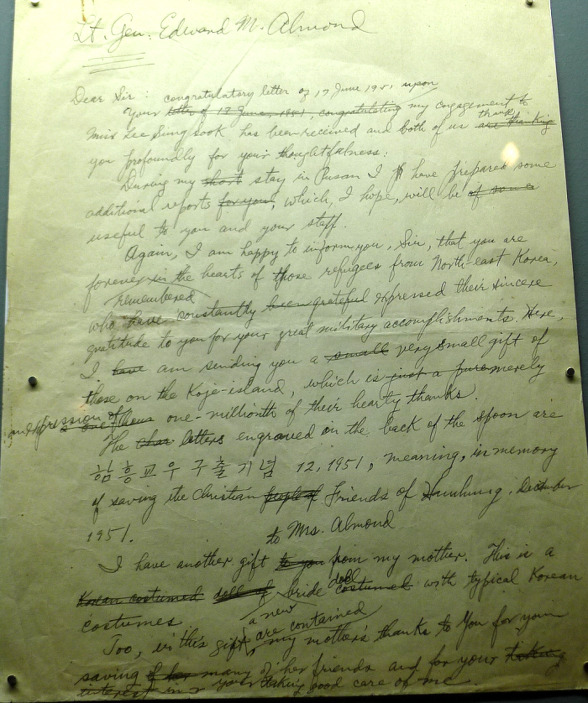 Lt. Gen. Edward M. Almond
Dear Sir: congratulatory letter of 17 June 1951 upon
Your letter of 17 June 1951, congratulating my engagement to
Miss Lee Sing Sook has been received and both of us thank are thanking
you profoundly for your thoughtfulness.
During my short stay in Pusan I have prepared some
additional reports for you, which, I hope, will be of some
useful to you and your staff.
Again, I am happy to inform you, Sir, that you are
forever in the hearts of those refugees from North-east Korea,
remembered
who have constantly been grateful expressed their sincere
gratitude to you for your great military accomplishments. Here,
I have am sending you a small very small gift of
those on the Koje-island, which is just a pure merely
an expression of one-millionth of their hearty thanks.
The char letters engraved on the back of the spoon are
함흥교우구출기념 12, 1951, meaning, in memory
of saving the Christian people of Friends of Hamhung, December
1951.
to Mrs. Almond
I have another gift to you from my mother. This is a
Korean costumed doll of bride doll costumed with typical Korean
costumes
a new
Too, in this gift, are contained my mother's thanks to You for your
saving of her many of her friends and for your taking
interest in your taking good care of me.